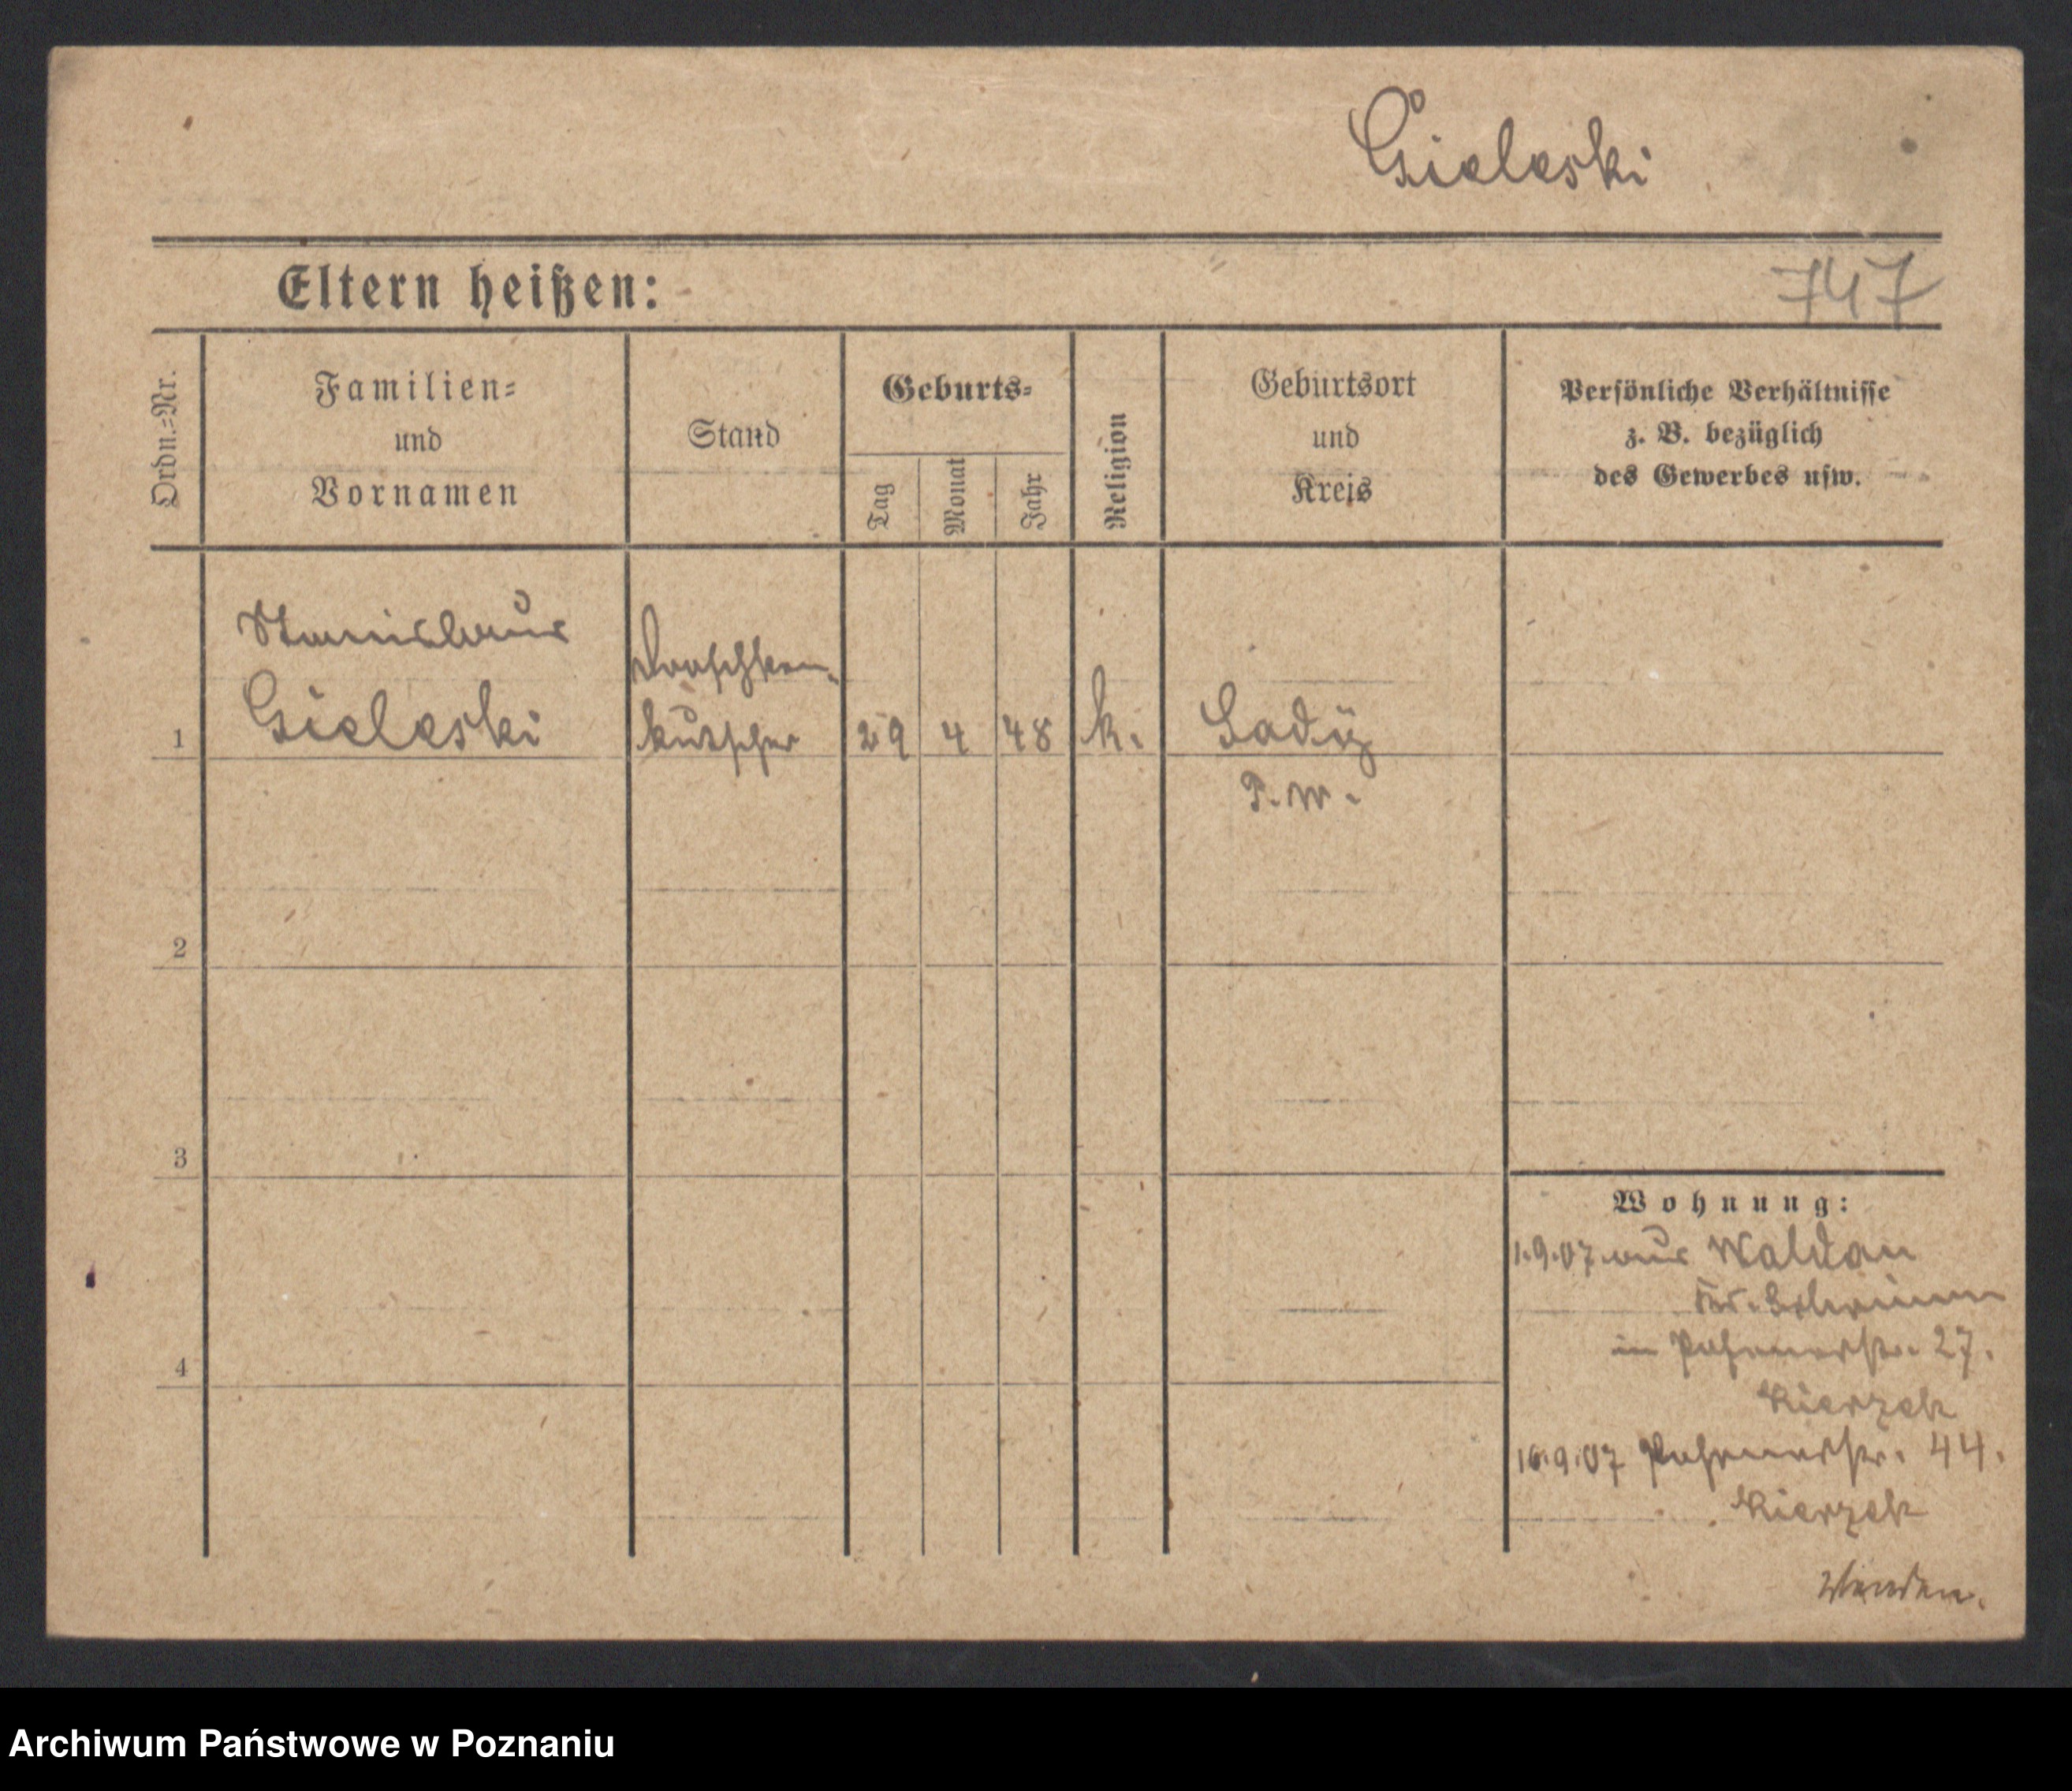 Gieleski
Eltern heißen:
747
Ordn.-Nr.
Familien-
und
Vornamen
Stand
Geburts-
Tag
Monat
Jahr
Religion
Geburtsort
und
Kreis
Persönliche Verhältnisse
z. B. bezüglich
des Gewerbes usw.
Stanislaus
Gieleski
Droschken-
kutscher
1
29
4
48
k.
P. W.
2
3
4
Wohnung:
1.9.07 aus Waldau
in Posenerstr. 27.
Kierzek
16.9.07 Posenerstr. 44.
Kierzek
Wenden.
Archiwum Państwowe w Poznaniu